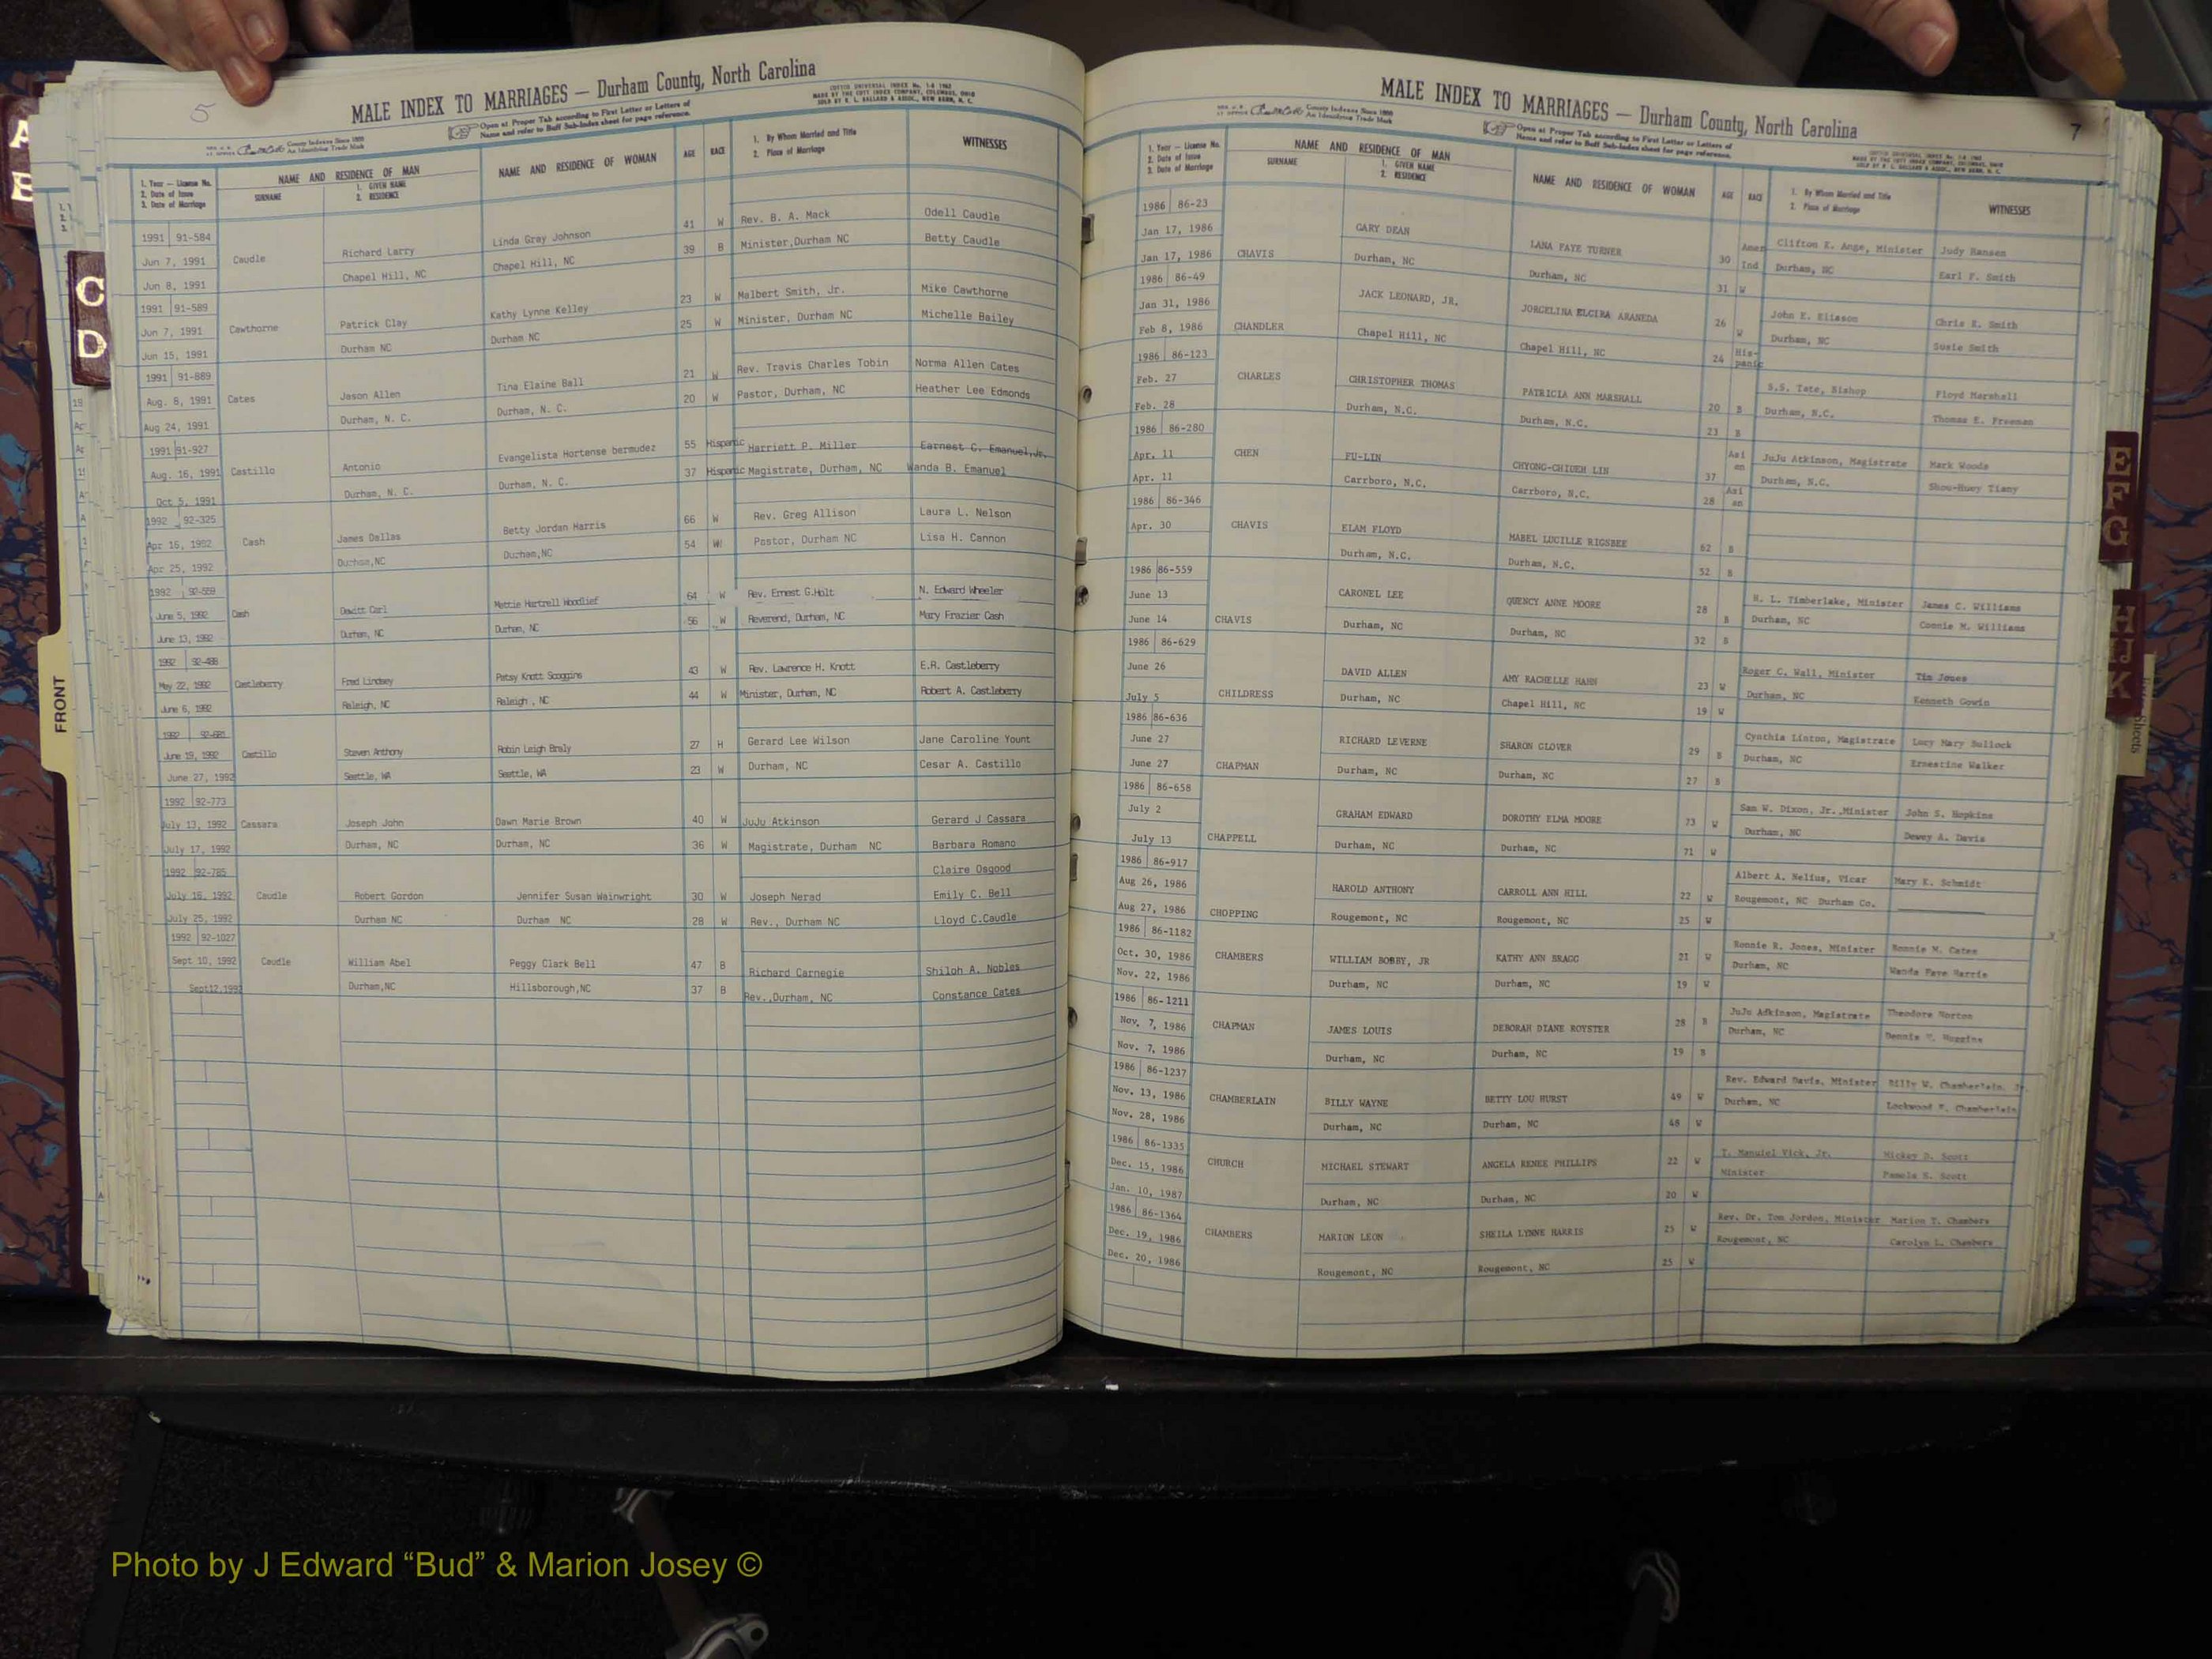 5
MALE INDEX TO MARRIAGES — Durham County, North Carolina
Open at Proper Tab according to First Letter or Letters of
Name and refer to Buff Sub-Index sheet for page reference.
County Indexes Since 1888
An Identifying Trade Mark
1. Year — License No.
2. Date of Issue
3. Date of Marriage
NAME AND RESIDENCE OF MAN
SURNAME
1. GIVEN NAME
2. RESIDENCE
NAME AND RESIDENCE OF WOMAN
AGE
RACE
1. By Whom Married and Title
2. Place of Marriage
WITNESSES
1991 91-584 41 W Rev. B. A. Mack Odell Caudle
Jun 7, 1991 Caudle Richard Larry Linda Gray Johnson 39 B Minister,Durham NC Betty Caudle
Jun 8, 1991 Chapel Hill, NC Chapel Hill, NC
1991 91-589 23 W Malbert Smith, Jr. Mike Cawthorne
Jun 7, 1991 Cawthorne Patrick Clay Kathy Lynne Kelley 25 W Minister, Durham NC Michelle Bailey
Jun 15, 1991 Durham NC Durham NC
1991 91-889 21 W Rev. Travis Charles Tobin Norma Allen Cates
Aug. 8, 1991 Cates Jason Allen Tina Elaine Ball 20 W Pastor, Durham, NC Heather Lee Edmonds
Aug 24, 1991 Durham, N. C. Durham, N. C.
1991 91-927 55 Hispanic Harriett P. Miller Earnest C. Emanuel,Jr.
Aug. 16, 1991 Castillo Antonio Evangelista Hortense bermudez 37 Hispanic Magistrate, Durham, NC Wanda B. Emanuel
Oct 5, 1991 Durham, N. C. Durham, N. C.
1992 92-325 66 W Rev. Greg Allison Laura L. Nelson
Apr 16, 1992 Cash James Dallas Betty Jordan Harris 54 W Pastor, Durham NC Lisa H. Cannon
Apr 25, 1992 Durham,NC Durham,NC
1992 92-559 64 W Rev. Ernest G.Holt N. Edward Wheeler
June 5, 1992 Cash Dewitt Carl Mettie Hartrell Woodlief 56 W Reverend, Durham, NC Mary Frazier Cash
June 13, 1992 Durham, NC Durham, NC
1992 92-488 43 W Rev. Lawrence H. Knott E.R. Castleberry
May 22, 1992 Castleberry Fred Lindsey Patsy Knott Scoggins 44 W Minister, Durham, NC Robert A. Castleberry
June 6, 1992 Raleigh, NC Raleigh , NC
1992 92-681 27 H Gerard Lee Wilson Jane Caroline Yount
June 19, 1992 Castillo Steven Anthony Robin Leigh Braly 23 W Durham, NC Cesar A. Castillo
June 27, 1992 Seattle, WA Seattle, WA
1992 92-773
July 13, 1992 Cassara Joseph John Dawn Marie Brown 40 W JuJu Atkinson Gerard J Cassara
July 17, 1992 Durham, NC Durham, NC 36 W Magistrate, Durham NC Barbara Romano
1992 92-785 Claire Osgood
July 16, 1992 Caudle Robert Gordon Jennifer Susan Wainwright 30 W Joseph Nerad Emily C. Bell
July 25, 1992 Durham NC Durham NC 28 W Rev., Durham NC Lloyd C.Caudle
1992 92-1027
Sept 10, 1992 Caudle William Abel Peggy Clark Bell 47 B Richard Carnegie Shiloh A. Nobles
Sept12,1992 Durham,NC Hillsborough,NC 37 B Rev.,Durham, NC Constance Cates
7
MALE INDEX TO MARRIAGES — Durham County, North Carolina
Open at Proper Tab according to First Letter or Letters of
Name and refer to Buff Sub-Index sheet for page reference.
County Indexes Since 1888
An Identifying Trade Mark
1. Year — License No.
2. Date of Issue
3. Date of Marriage
NAME AND RESIDENCE OF MAN
SURNAME
1. GIVEN NAME
2. RESIDENCE
NAME AND RESIDENCE OF WOMAN
AGE
RACE
1. By Whom Married and Title
2. Place of Marriage
WITNESSES
1986 86-23
Jan 17, 1986 GARY DEAN LANA FAYE TURNER 30 Amer Ind Clifton E. Ange, Minister Judy Hansen
Jan 17, 1986 CHAVIS Durham, NC Durham, NC 31 W Durham, NC Earl F. Smith
1986 86-49
Jan 31, 1986 JACK LEONARD, JR. 26 W John E. Eliason Chris E. Smith
Feb 8, 1986 CHANDLER Chapel Hill, NC Chapel Hill, NC 24 His-panic Durham, NC Susie Smith
1986 86-123
Feb. 27 CHARLES CHRISTOPHER THOMAS PATRICIA ANN MARSHALL 20 B S.S. Tate, Bishop Floyd Marshall
Feb. 28 Durham, N.C. Durham, N.C. 23 B Durham, N.C. Thomas E. Freeman
1986 86-280
Apr. 11 CHEN FU-LIN CHYONG-CHIUEH LIN 37 Asian JuJu Atkinson, Magistrate Mark Woods
Apr. 11 Carrboro, N.C. Carrboro, N.C. 28 Asian Durham, N.C.
1986 86-346
Apr. 30 CHAVIS ELAM FLOYD MABEL LUCILLE RIGSBEE 62 B
Durham, N.C. Durham, N.C. 52 B
1986 86-559
June 13 CARONEL LEE QUENCY ANNE MOORE 28 B H. L. Timberlake, Minister James C. Williams
June 14 CHAVIS Durham, NC Durham, NC 32 B Durham, NC Connie M. Williams
1986 86-629
June 26 DAVID ALLEN AMY RACHELLE HAHN 23 W Roger C. Wall, Minister Tim Jones
July 5 CHILDRESS Durham, NC Chapel Hill, NC 19 W Durham, NC Kenneth Gowin
1986 86-636
June 27 RICHARD LEVERNE SHARON GLOVER 29 B Cynthia Linton, Magistrate Lucy Mary Bullock
June 27 CHAPMAN Durham, NC Durham, NC 27 B Durham, NC Ernestine Walker
1986 86-658
July 2 GRAHAM EDWARD DOROTHY ELMA MOORE 73 W Sam W. Dixon, Jr.,Minister John S. Hopkins
July 13 CHAPPELL Durham, NC Durham, NC 71 W Durham, NC Dewey A. Davis
1986 86-917
Aug 26, 1986 HAROLD ANTHONY CARROLL ANN HILL 22 W Albert A. Nelius, Vicar Mary K. Schmidt
Aug 27, 1986 CHOPPING Rougemont, NC Rougemont, NC 25 W Rougemont, NC Durham Co.
1986 86-1182
Oct. 30, 1986 CHAMBERS WILLIAM BOBBY, JR KATHY ANN BRAGG 21 W Ronnie R. Jones, Minister Ronnie M. Cates
Nov. 22, 1986 Durham, NC Durham, NC 19 W Durham, NC Wanda Faye Harris
1986 86-1211
Nov. 7, 1986 CHAPMAN JAMES LOUIS DEBORAH DIANE ROYSTER 28 B JuJu Adkinson, Magistrate Theodore Norton
Nov. 7, 1986 Durham, NC Durham, NC 19 B Durham, NC
1986 86-1237
Nov. 13, 1986 CHAMBERLAIN BILLY WAYNE BETTY LOU HURST 49 W Rev. Edward Davis, Minister Billy W. Chamberlain, Jr.
Nov. 28, 1986 Durham, NC Durham, NC 48 W Durham, NC Lockwood Chamberlain
1986 86-1335
Dec. 15, 1986 CHURCH MICHAEL STEWART ANGELA RENEE PHILLIPS 22 W T. Manuiel Vick, Jr. Mickey D. Scott
Jan. 10, 1987 Durham, NC Durham, NC 20 W Minister Pamela S. Scott
1986 86-1364
Dec. 19, 1986 CHAMBERS MARION LEON SHEILA LYNNE HARRIS 25 W Rev. Dr. Tom Jordon, Minister Marion T. Chambers
Dec. 20, 1986 Rougemont, NC Rougemont, NC 25 W Rougemont, NC Carolyn L. Chambers
A
B
C
D
E
F
G
H
IJ
K
FRONT
Photo by J Edward “Bud” & Marion Josey ©